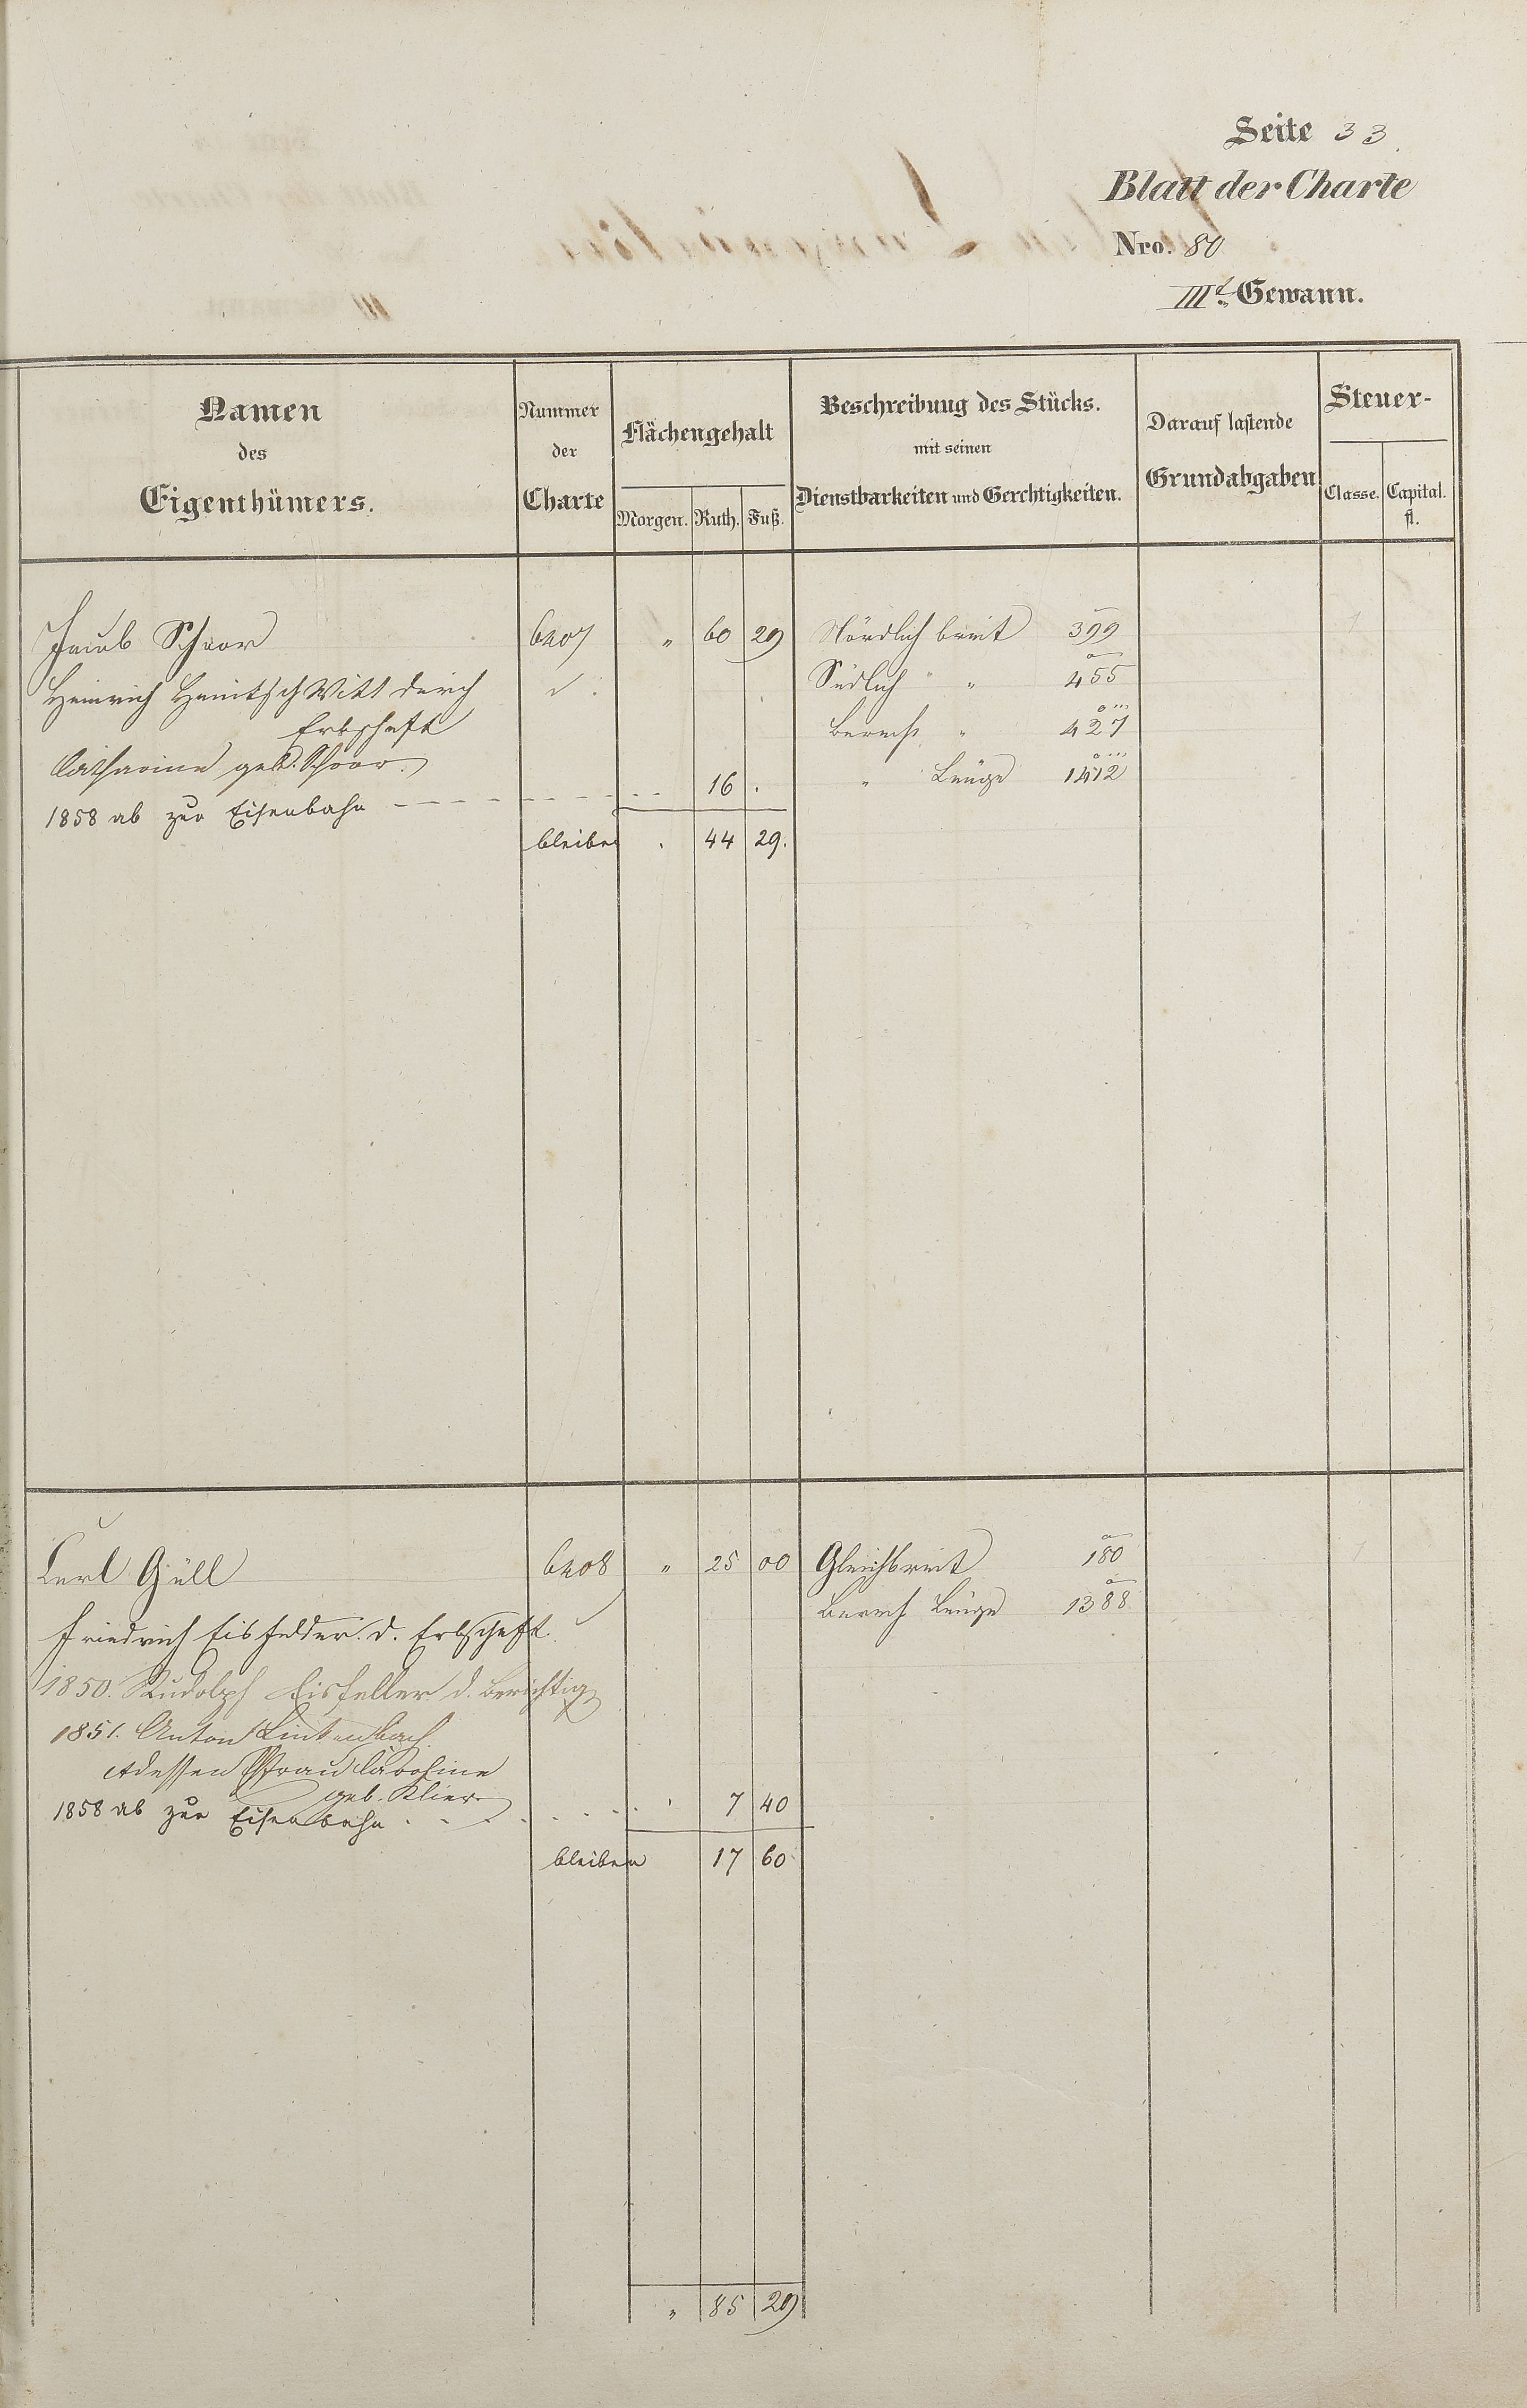 Seite 33.
Blatt der Charte
Nro. 80
IIIt. Gewann.
Namen des Eigenthümers.
Nummer der Charte
Flächengehalt
Morgen. Ruth. Fuß.
Beschreibung des Stücks. mit seinen Dienstbarkeiten und Gerchtigkeiten.
Darauf lastende Grundabgaben
Steuer-
Classe. Capital. fl.
Jacob Schoor 6407 " 60 29 Nördlich breit 399
Heinrich Witt durch Südlich " 455
Erbschaft Berech " 427
Catharine geb. Schoor. " Länge 1412
1858 ab zur Eisenbahn 16 .
bleiben . 44 29.
Carl Güll 6408 " 25 00 Gleichbreit 180
Berech Länge 1388
Friedrich Eisfelder. d. Erbschaft.
1850. Rudolph Eisfeller d. Berichtig
1851. Anton
dessen Frau
geb. Klier
1858 ab zur Eisenbahn . 7 40
bleiben 17 60
" 85 29